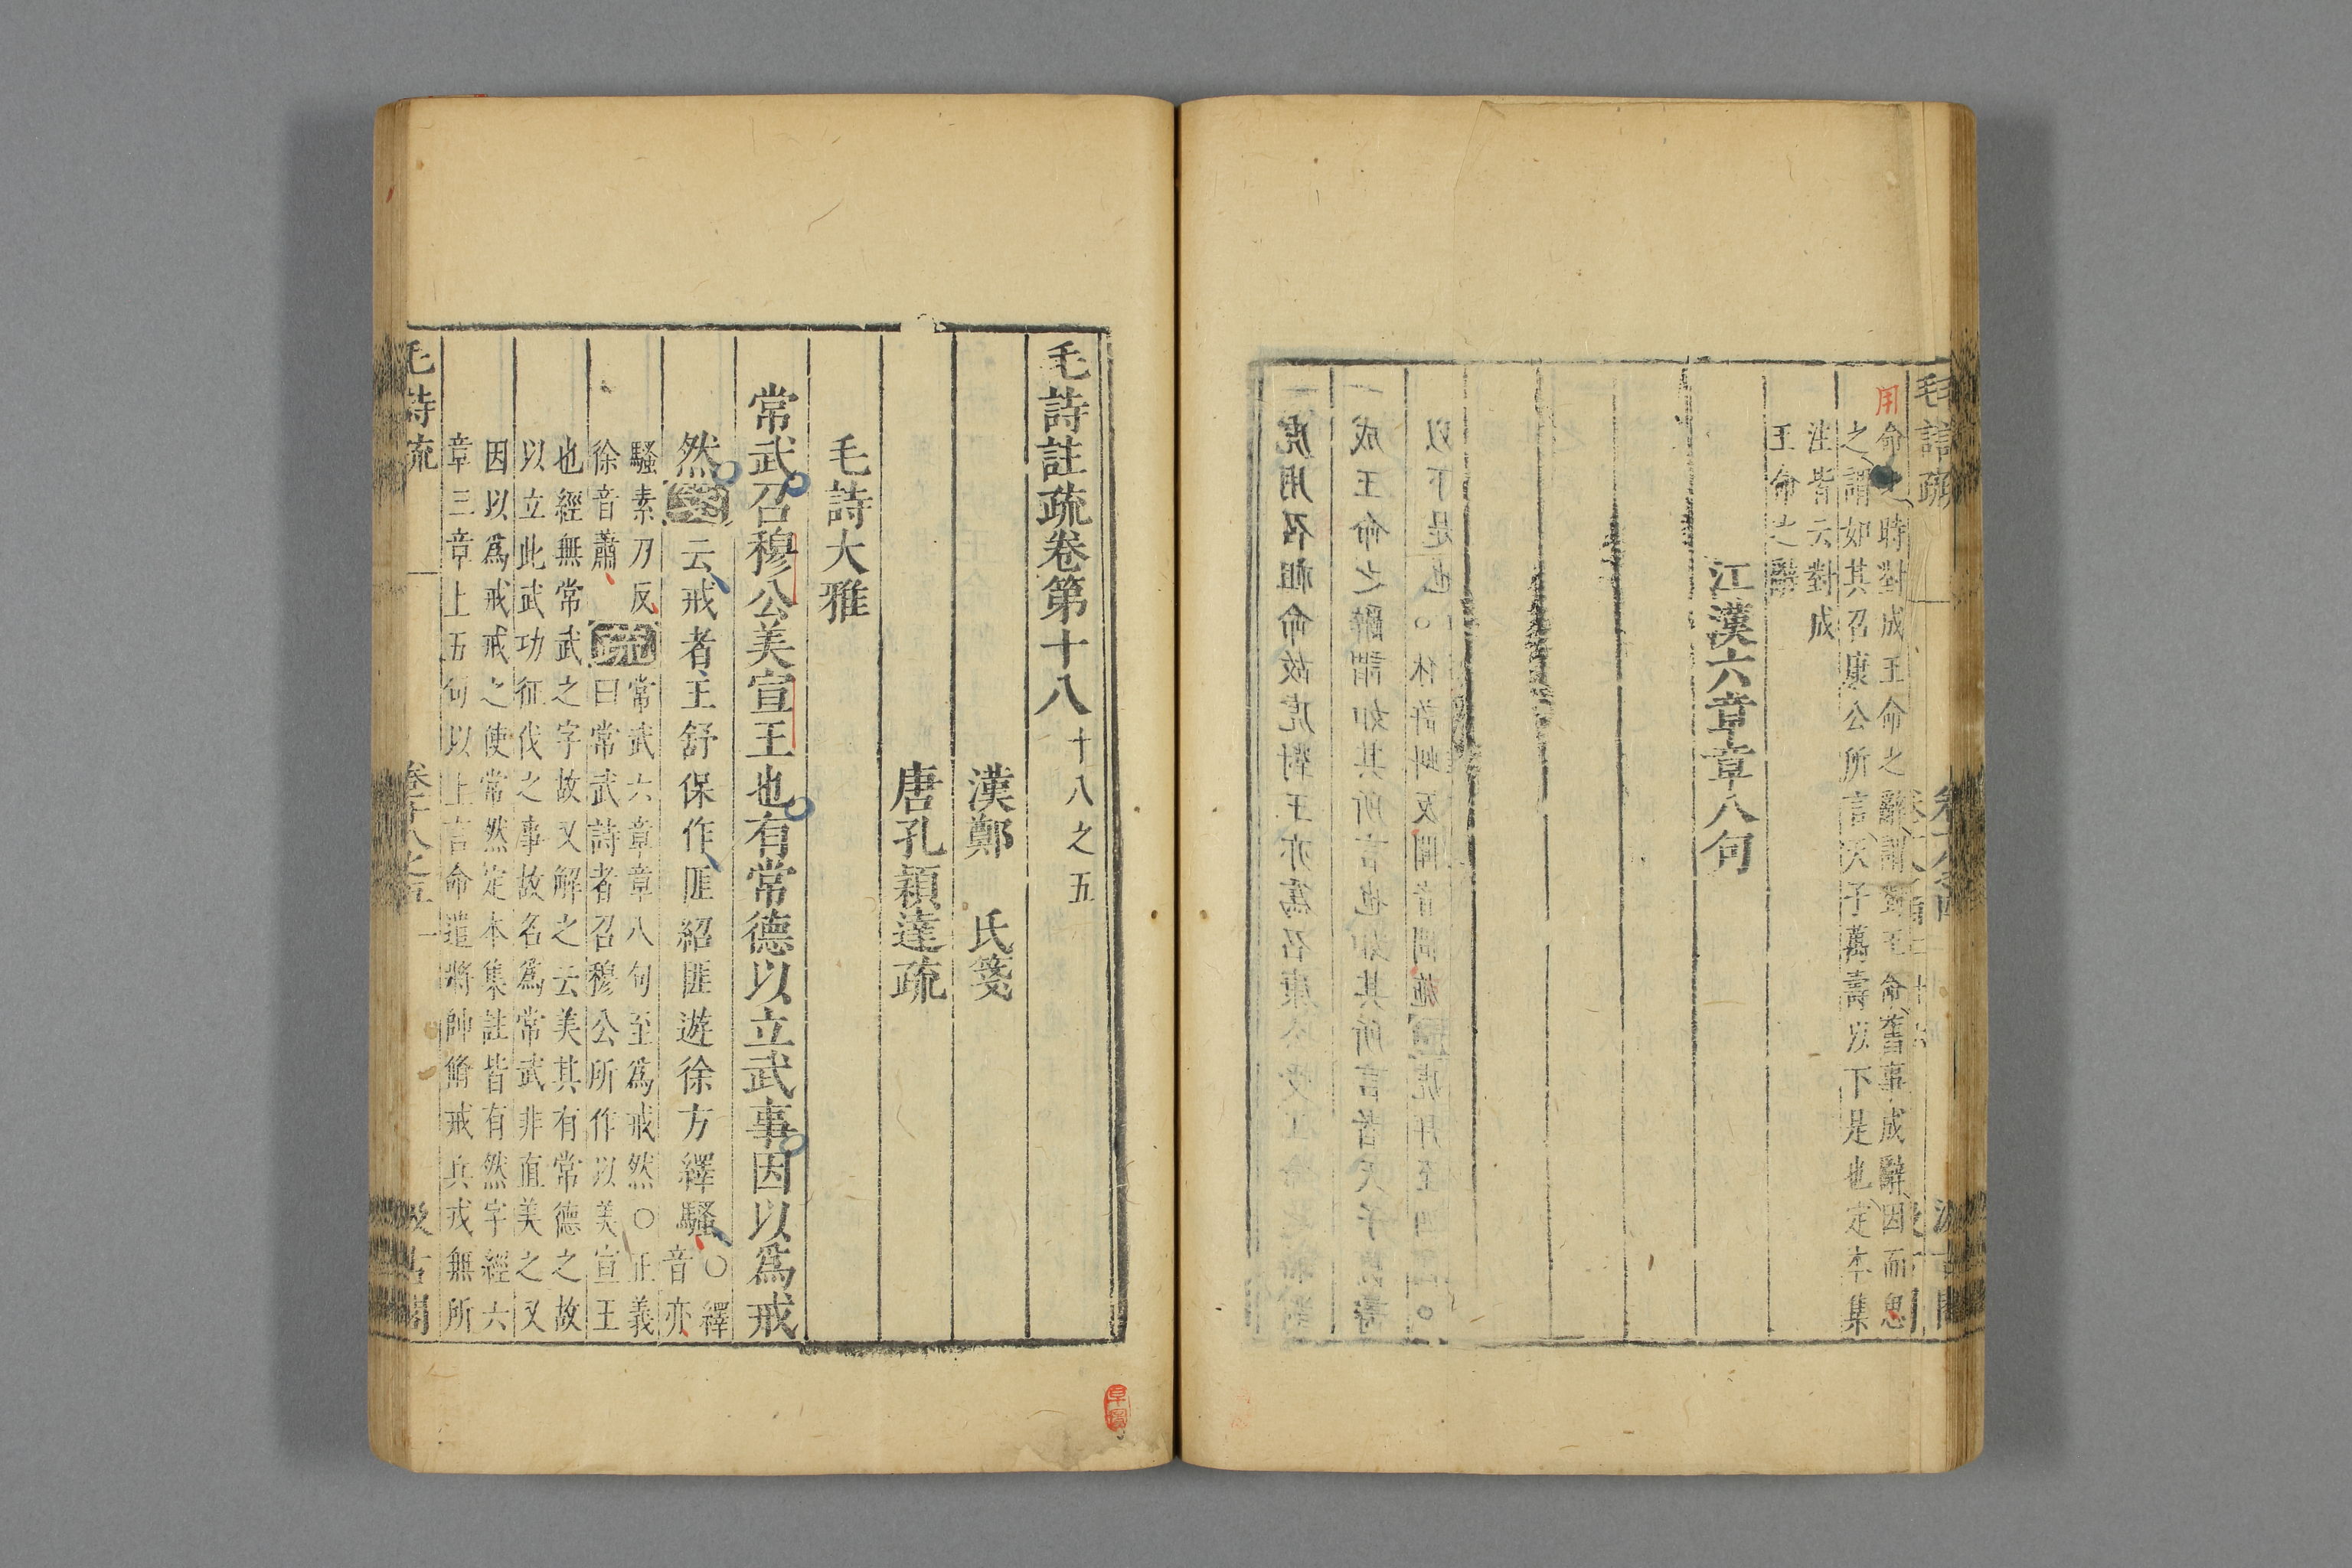 毛詩疏
用
命之時對成王命之辭謂對王命舊事成辭因而思
之謂如其召康公所言天子萬壽以下是也定本集
注皆云對成
王命之辭
江漢六章章八句
毛詩註疏卷第十八 十八之五
漢鄭 氏箋
唐孔穎達疏
毛詩大雅
常武召穆公美宣王也有常德以立武事因以爲戒
然箋云戒者王舒保作匪紹匪遊徐方繹騷○繹
音亦
騷素刀反
徐音蕭
疏常武六章章八句至爲戒然○正義
曰常武詩者召穆公所作以美宣王
也經無常武之字故又解之云美其有常德之故
以立此武功征伐之事故名爲常武非直美之又
因以爲戒戒之使常然定本集註皆有然字經六
章三章上五句以上言命遣將帥脩戒兵戎無所
毛詩疏 卷十八之五 一 汲古閣